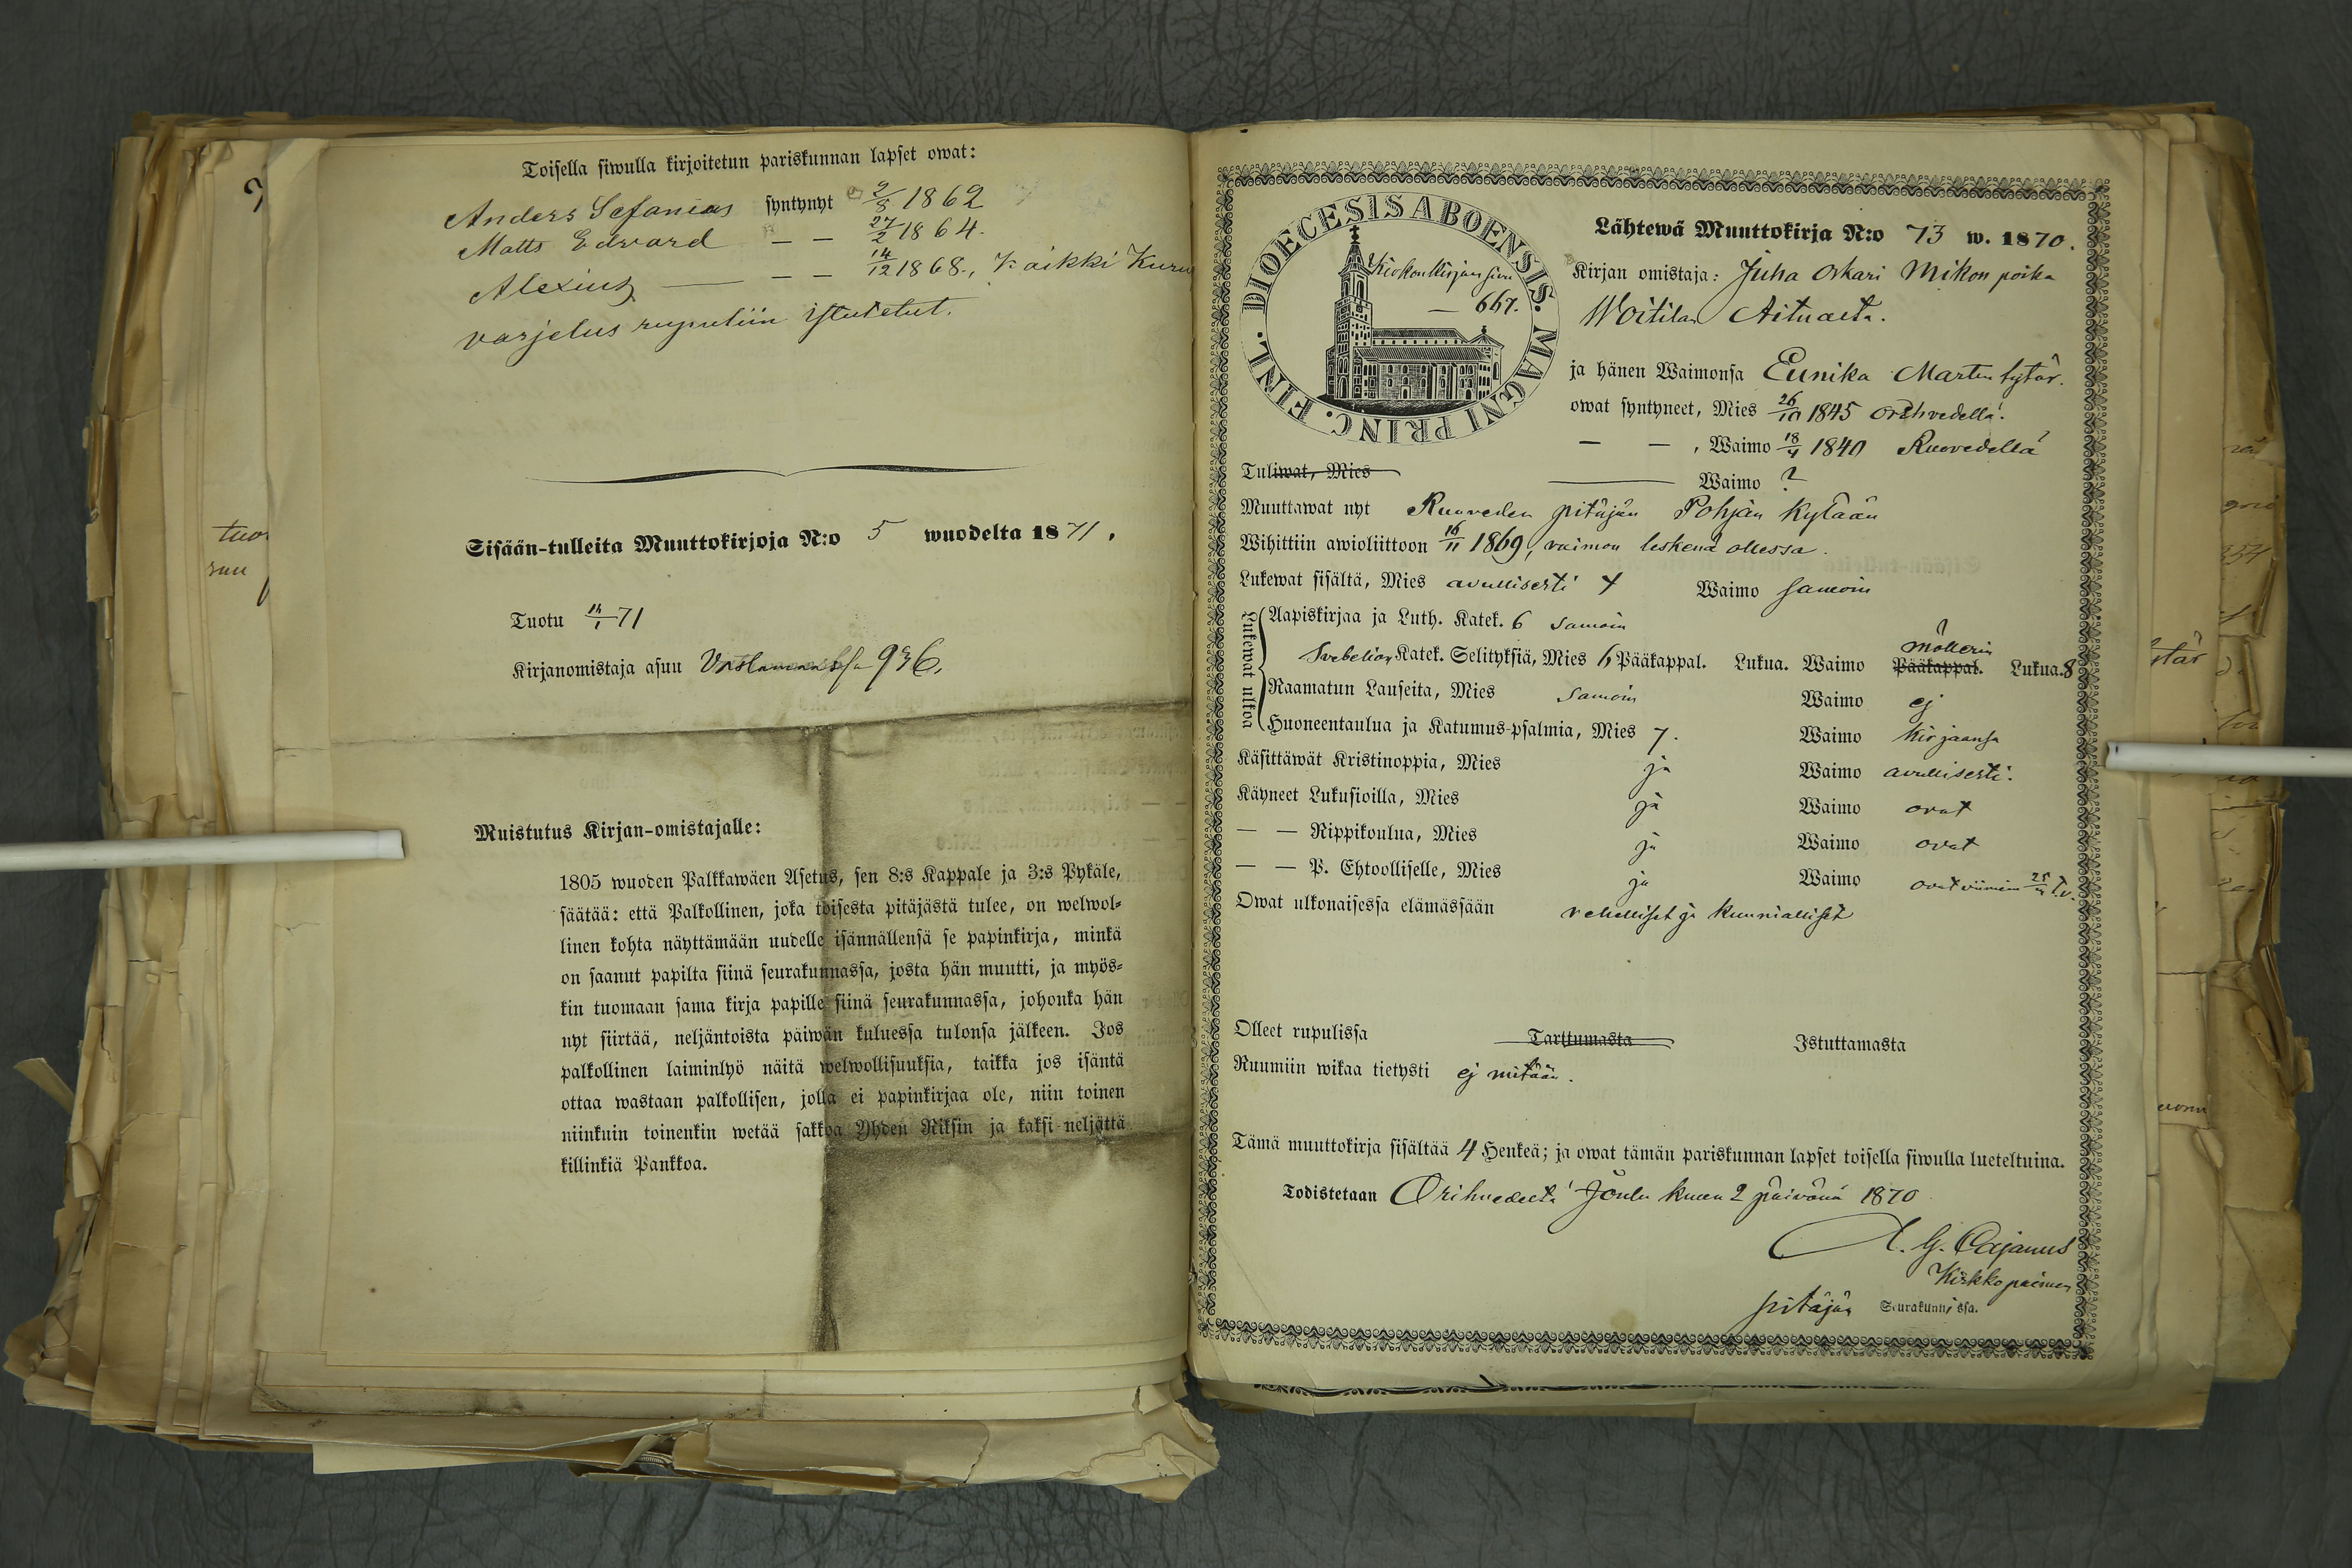 Toisella siwulla kirjoitetun pariskunnan lapset owat:
Anders Sefanias syntynyt 9/8 1862
Matts Edvard — — 27/2 1864.
Alexius — — — 14/12 1868., Kaikki Kuru
varjelus rupuliin istutetut.
Sisään-tulleita Muuttokirjoja N:o 5 wuodelta 1871.
Tuotu 14/1 71
Kirjanomistaja asuu 936.
Muistutus Kirjan-omistajalle:
1805 wuoden Palkkawäen Asetus, sen 8:s Kappale ja 3:s Pykäle,
säätää: että Palkollinen, joka toisesta pitäjästä tulee, on welwol-
linen kohta näyttämään uudelle isännällensä se papinkirja, minkä
on saanut papilta siinä seurakunnassa, josta hän muutti, ja myös-
kin tuomaan sama kirja papille siinä seurakunnassa, johonka hän
nyt siirtää, neljäntoista päiwän kuluessa tulonsa jälkeen. Jos
palkollinen laiminlyö näitä welwollisuuksia, taikka jos isäntä
ottaa wastaan palkollisen, jolla ei papinkirjaa ole, niin toinen
niinkuin toinenkin wetää sakkoa Yhden Riksin ja kaksi neljättä
killinkiä Pankkoa.
DIOECESIS ABOENSIS. MAGNI PRINC. FINL.
Kirkonkirjan sivu
— 667.
Lähtewä Muuttokirja N:o 73 w. 1870.
Kirjan omistaja: Juha Oskari Mikon poika
Woitilan Aituasta.
ja hänen Waimonsa Eunika Martin tytär.
owat syntyneet, Mies 26/10 1845 Orihvedellä.
— — , Waimo 18/4 1840 Ruovedellä
Tuliwat, Mies — Waimo ?
Muuttawat nyt Ruoveden pitäjän Pohjan kylään
Wihittiin awioliittoon 16/11 1869, vaimon leskenä ollessa.
Lukewat sisältä, Mies avullisesti 7 Waimo samoin
Lukewat ulkoa
Aapiskirjaa ja Luth. Katek. 6 samoin
Svebelion Katek. Selityksiä, Mies 6 Pääkappal. Lukua. Waimo Pääkappal. möllerin Lukua. 8
Raamatun Lauseita, Mies samoin Waimo ej
Huoneentaulua ja Katumus-psalmia, Mies 7. Waimo kirjaansa
Käsittäwät Kristinoppia, Mies ja Waimo avullisesti.
Käyneet Lukusioilla, Mies ja Waimo ovat
— — Rippikoulua, Mies ja Waimo ovat
— — P. Ehtoolliselle, Mies ja Waimo ovat viimein t.v.
Owat ulkonaisessa elämässään rehelliset ja kunnialliset
Olleet rupulissa Tarttumasta Istuttamasta
Ruumiin wikaa tietysti ej mitään.
Tämä muuttokirja sisältää 4 Henkeä; ja owat tämän pariskunnan lapset toisella siwulla lueteltuina.
Todistetaan Orihvedeltä Joulu kuun 2 päivänä 1870
A. G. Cajanus
Kirkkopaimen
pitäjän Seurakunnissa.